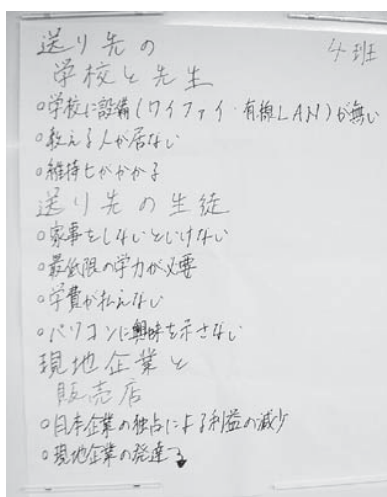 送り先の
4班
学校と先生
○学校に設備(ワイファイ・有線LAN)が無い
○教える人が居ない
○維持ヒがかかる
送り先の生徒
○家事をしないといけない
○最低限の学力が必要
○学費が払えない
○パソコンに興味を示さない
現地企業と
販売店
○日本企業の独占による利益の減少
○現地企業の発達